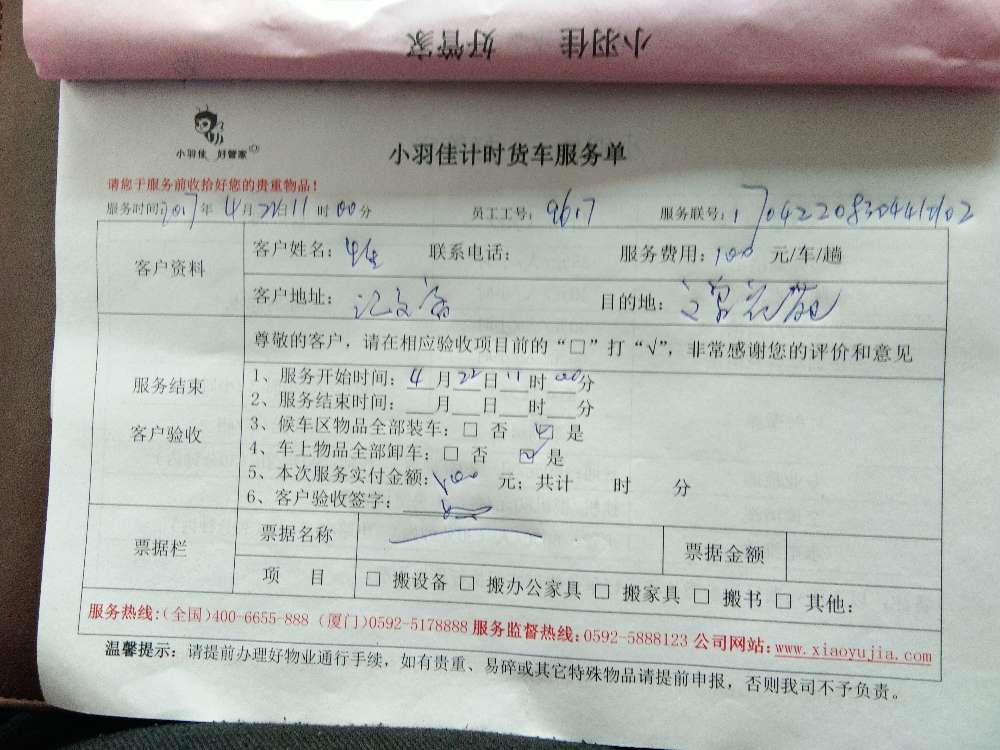 小羽佳 好管家
小羽佳 好管家
小羽佳计时货车服务单
请您于服务前收拾好您的贵重物品！
服务时间：2017年4月22日11时00分 员工工号：9617 服务联号：
客户资料 客户姓名： 联系电话： 服务费用：100元/车/趟
客户地址： 目的地：
尊敬的客户，请在相应验收项目前的“□”打“√”，非常感谢您的评价和意见
服务结束 客户验收
1、服务开始时间：4月22日11时00分
2、服务结束时间：___月___日___时___分
3、候车区物品全部装车：□ 否 ☑ 是
4、车上物品全部卸车：□ 否 ☑ 是
5、本次服务实付金额：100 元；共计 时 分
6、客户验收签字：
票据栏 票据名称 票据金额
项 目 □ 搬设备 □ 搬办公家具 □ 搬家具 □ 搬书 □ 其他：
服务热线：(全国)400-6655-888 (厦门)0592-5178888 服务监督热线：0592-5888123 公司网站：www.xiaoyujia.com
温馨提示：请提前办理好物业通行手续，如有贵重、易碎或其它特殊物品请提前申报，否则我司不予负责。